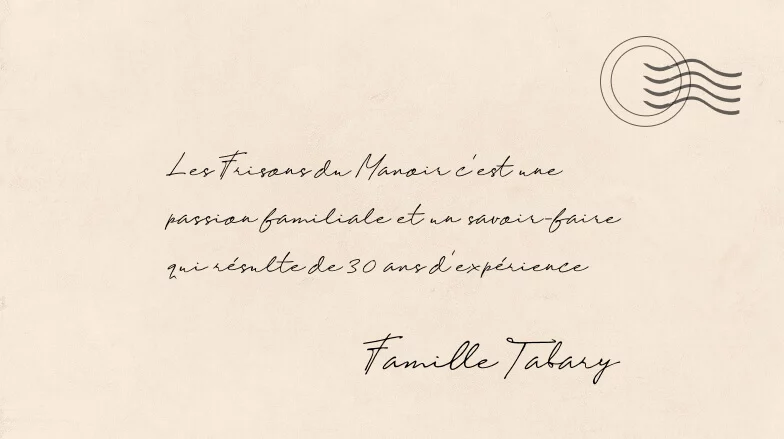 Les Frisons du Manoir c'est une
passion familiale et un savoir-faire
qui résulte de 30 ans d'expérience
Famille Tabary